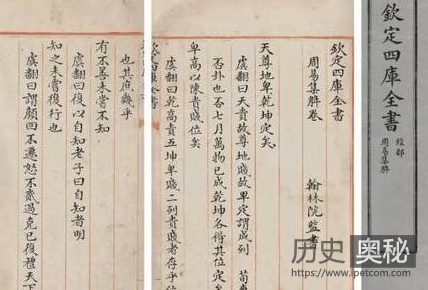 欽定四庫全書
經部
周易集解
欽定四庫全書
周易集解卷
翰林院監書
天尊地卑乾坤定矣
虞翻曰天貴故尊地賤故卑定謂成列 荀
否卦也否七月萬物已成乾坤各得其位定
卑高以陳貴賤位矣
虞翻曰乾高貴五坤卑賤二列貴賤者存乎位
也其庶幾乎
有不善未嘗不知
虞翻曰復以自知老子曰自知者明
知之未嘗復行也
虞翻曰謂顏回不遷怒不貳過克己復禮天下
历史奥秘
https://www.ipetcom.com